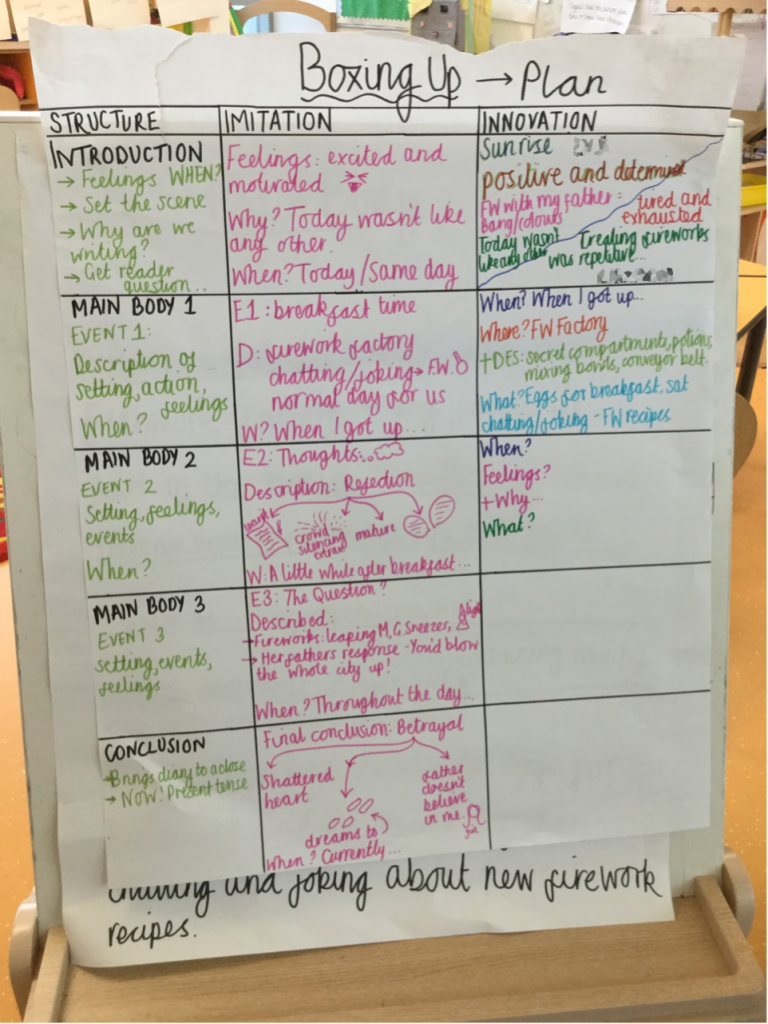 Boxing Up → Plan
STRUCTURE
IMITATION
INNOVATION
INTRODUCTION
→ Feelings WHEN?
→ Set the scene
→ Why are we
writing?
→ Get reader
question...
Feelings: excited and
motivated
Why? Today wasn't like
any other.
When? Today/Same day
Sunrise
positive and determined
FW with my father:
Bang/colours
Today wasn't
like any other
tired and
exhausted
Creating fireworks
was repetitive...
MAIN BODY 1
EVENT 1:
Description of
setting, action,
feelings
When?
E1: breakfast time
D: firework factory
chatting/joking → F.W.
normal day for us
W? When I got up...
When? When I got up...
Where? FW Factory
+DES: secret compartments, potions,
mixing bowls, conveyor belt.
What? Eggs for breakfast, sat
chatting/joking - FW recipes
MAIN BODY 2
EVENT 2
Setting, feelings,
events
When?
E2: Thoughts...
Description: Rejection
work
crowd
silencing
mature
W: A little while after breakfast...
When?
Feelings?
+ Why...
What?
MAIN BODY 3
EVENT 3
setting, events,
feelings
E3: The Question?
Described:
→ Fireworks: leaping M, G. Sneezes,
→ Her fathers response - You'd blow
the whole city up!
When? Throughout the day...
CONCLUSION
→ Brings diary to a close
→ Now! Present tense
Final conclusion: Betrayal
Shattered
heart
dreams to
father
doesn't
believe
in me.
When? Currently...
chatting and joking about new firework
recipes.